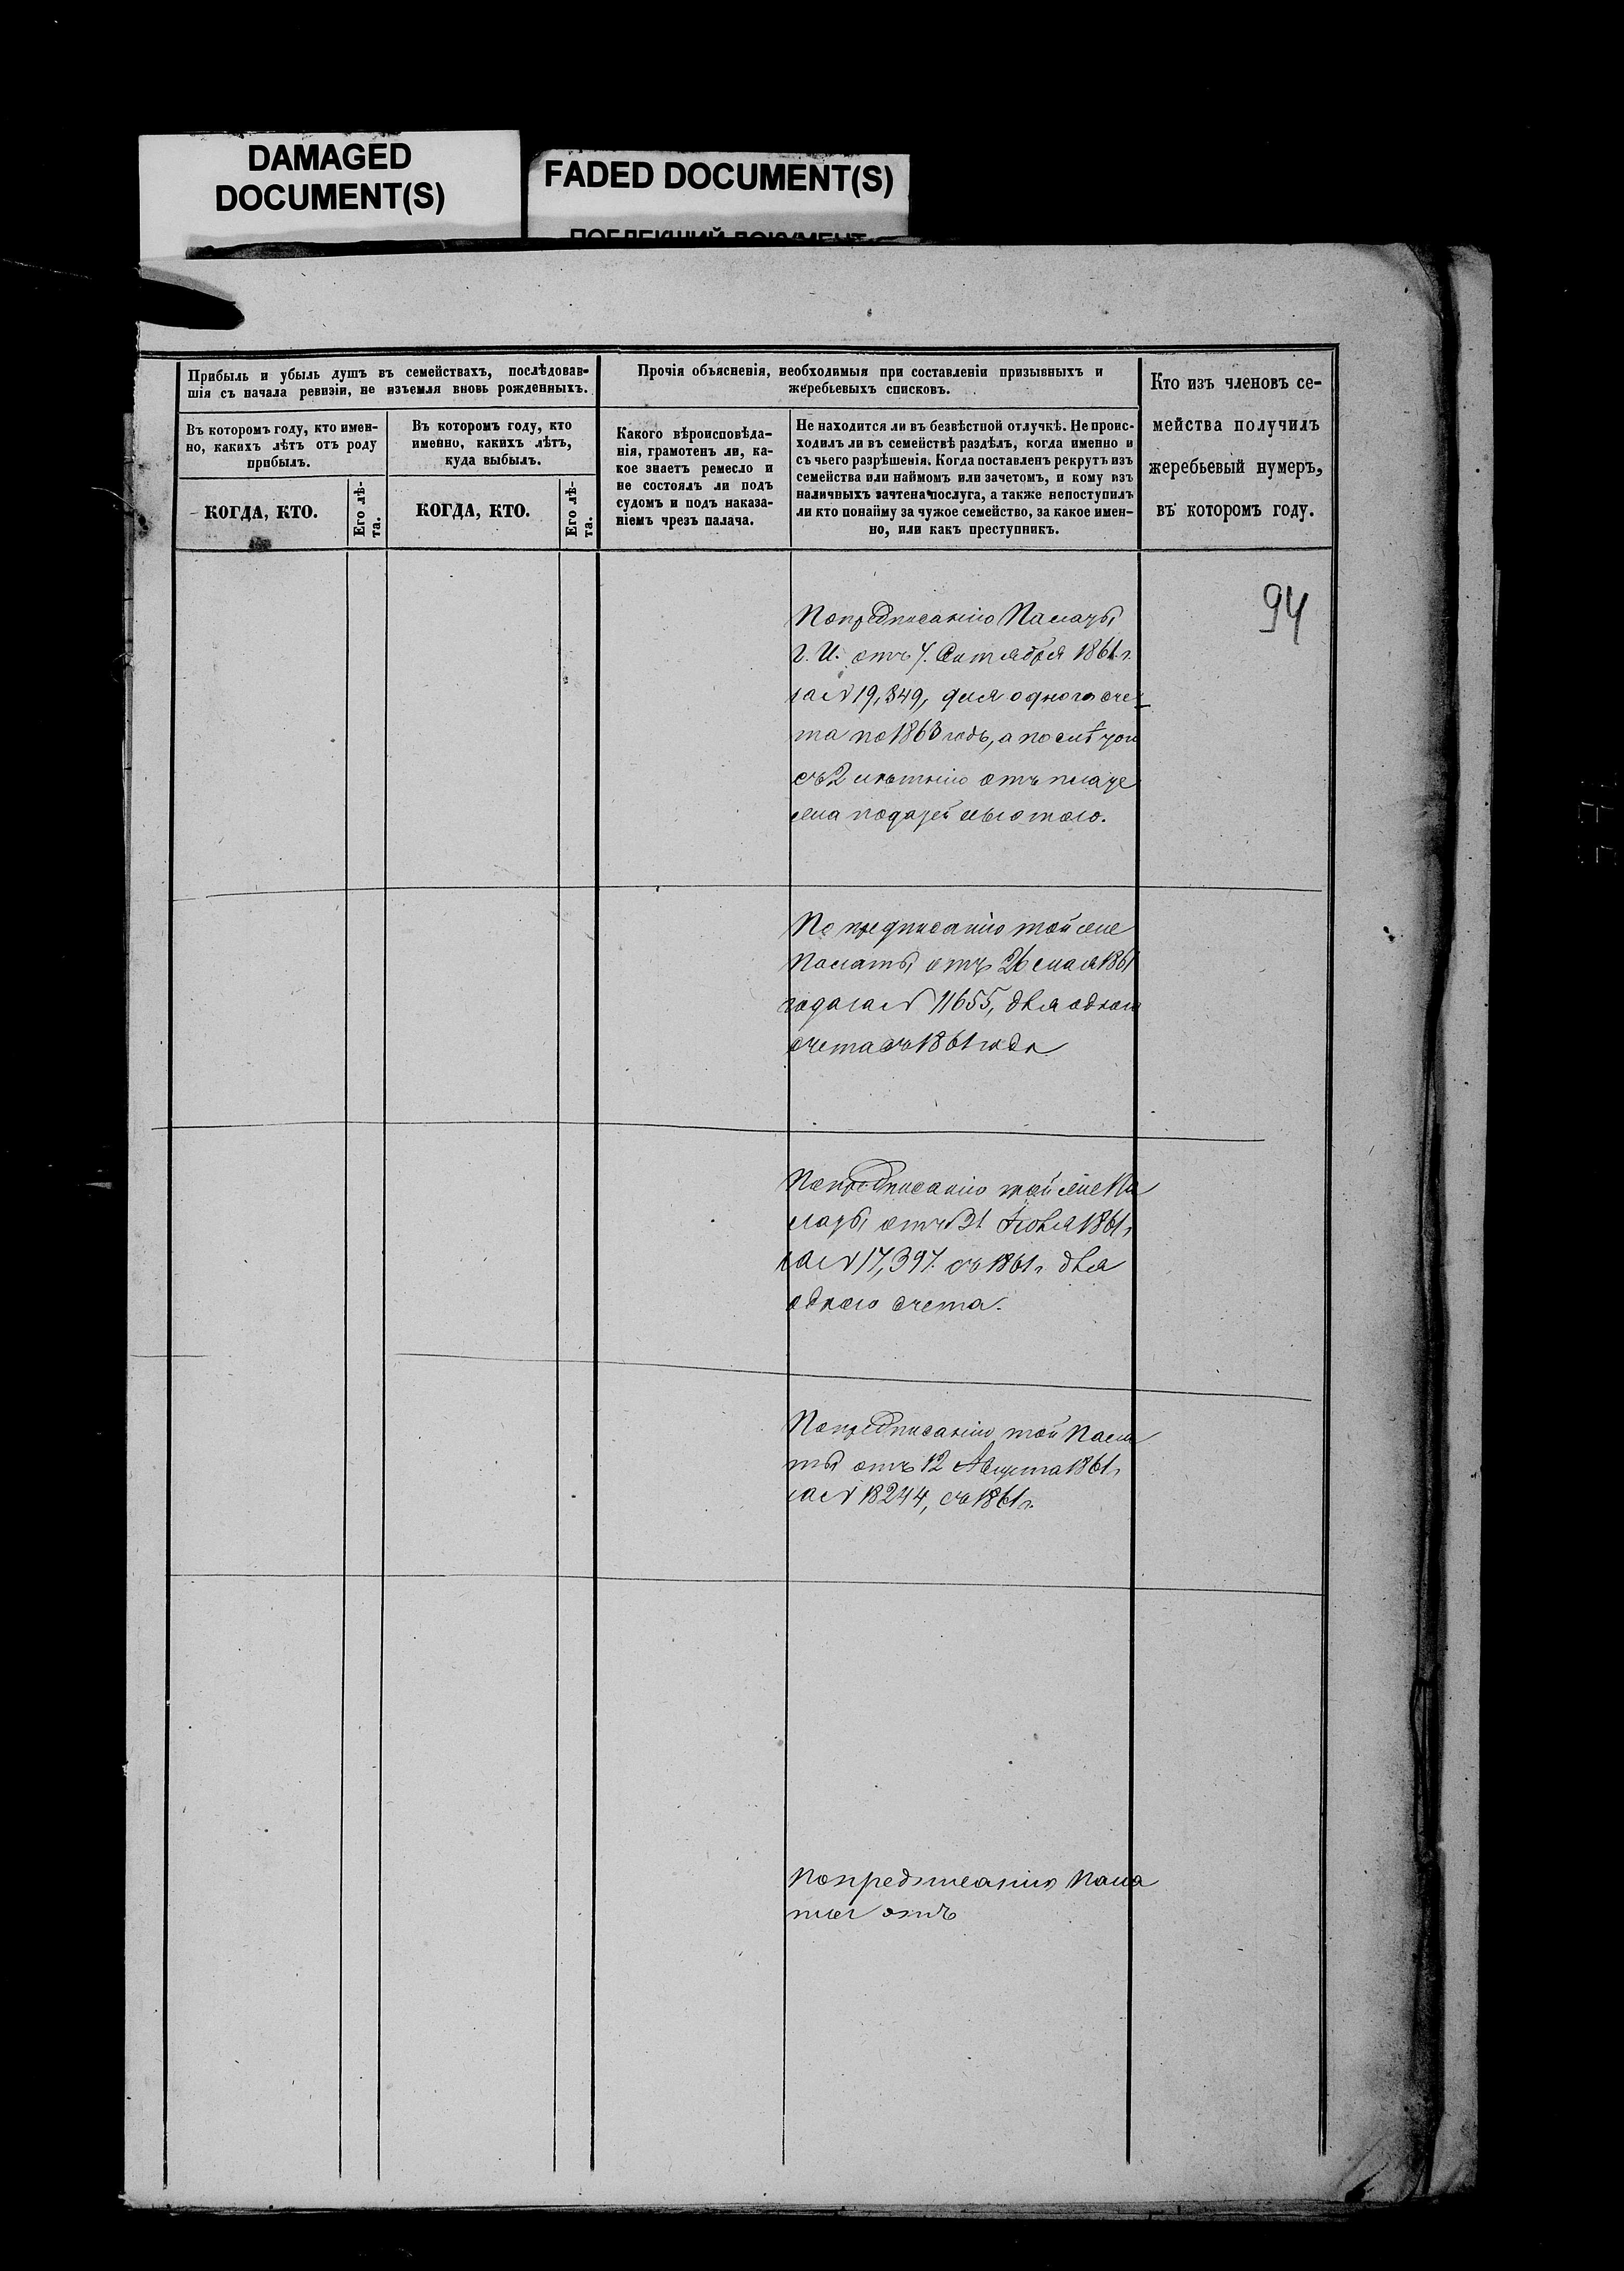 DAMAGED
DOCUMENT(S)
FADED DOCUMENT(S)
Прибыль и убыль душъ въ семействахъ, послѣдовав-
шія съ начала ревизіи, не изъемля вновь рожденныхъ.
Въ которомъ году, кто имен-
но, какихъ лѣтъ отъ роду
прибылъ.
КОГДА, КТО.
Его лѣ-
та.
Въ которомъ году, кто
именно, какихъ лѣтъ,
куда выбылъ.
КОГДА, КТО.
Его лѣ-
та.
Прочія объясненія, необходимыя при составленіи призывныхъ и
жеребьевыхъ списковъ.
Какого вѣроисповѣда-
нія, грамотенъ ли, ка-
кое знаетъ ремесло и
не состоялъ ли подъ
судомъ и подъ наказа-
ніемъ чрезъ палача.
Не находится ли въ безвѣстной отлучкѣ. Не проис-
ходилъ ли въ семействѣ раздѣлъ, когда именно и
съ чьего разрѣшенія. Когда поставленъ рекрутъ изъ
семейства или наймомъ или зачетомъ, и кому изъ
наличныхъ зачтена послуга, а также непоступилъ
ли кто понайму за чужое семейство, за какое имен-
но, или какъ преступникъ.
Кто изъ членовъ се-
мейства получилъ
жеребьевый нумеръ,
въ которомъ году.
94
По предписанію Палаты
Г. И. отъ 7. Сентября 1861 г.
за № 19,849, для одного сче-
та по 1863 годъ, а
съ 2 отъ
податей
По предписанію той же
Палаты отъ 26 мая 1861
года за № 11655, для одного
счета съ 1861 года
По предписанію той же Па
латы отъ 31 Іюля 1861 г.
за № 17,397. съ 1861 г. для
одного счета.
По предписанію той Пала
ты отъ 12 Августа 1861 г.
за № 18244, съ 1861 г.
По предписанію Пала
ты отъ